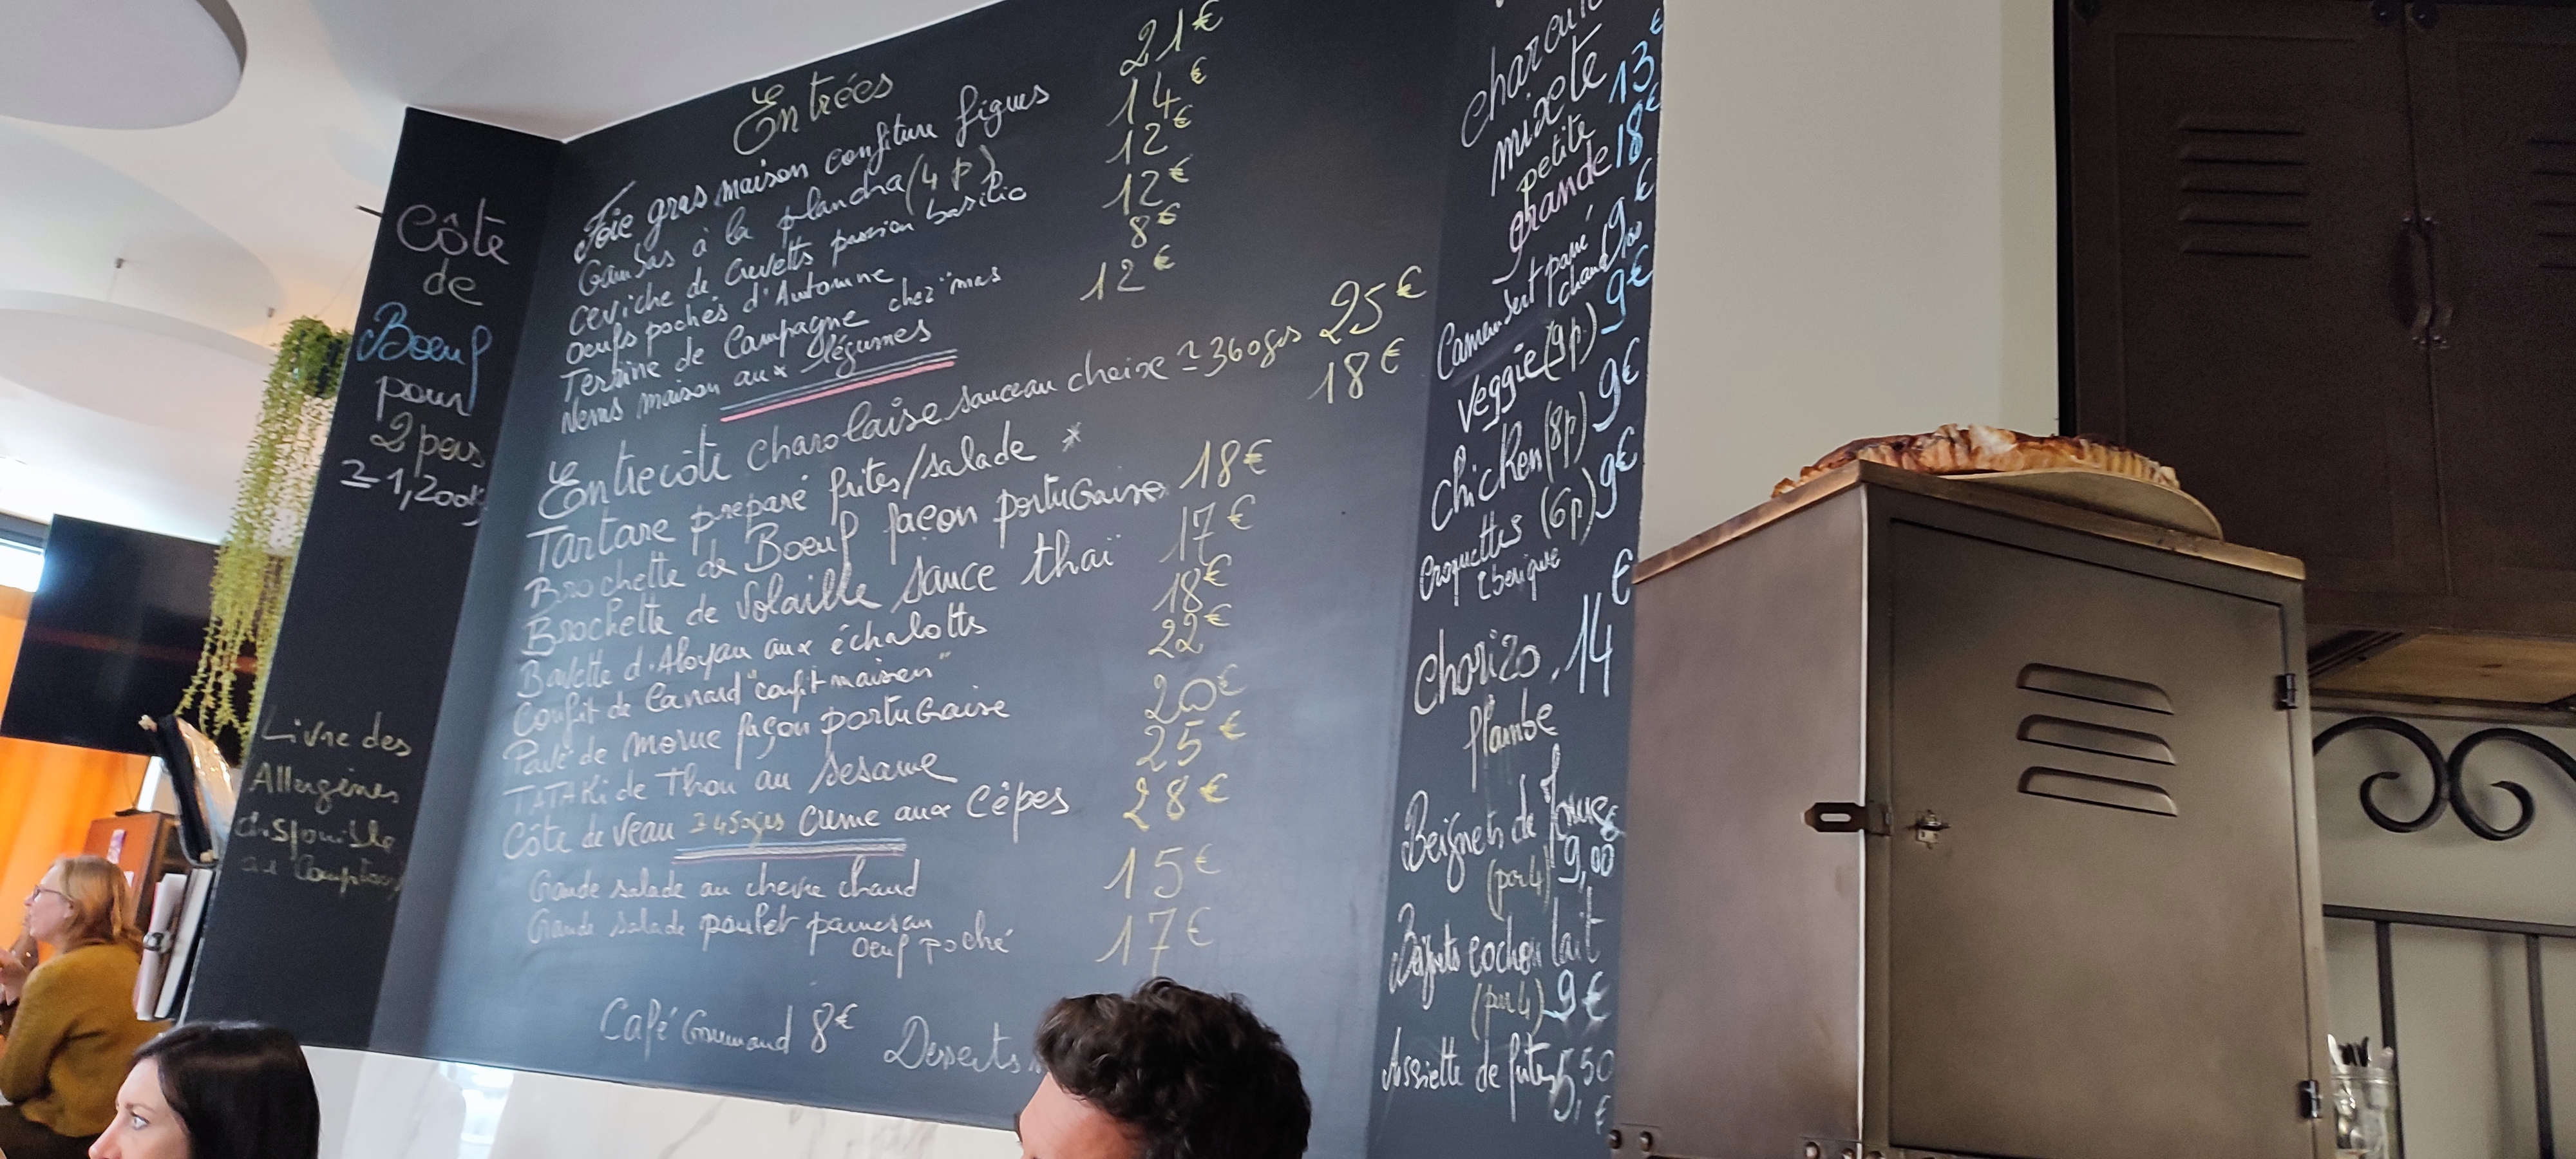 Côte
de
Boeuf
pour
2 pers
≃ 1,200kg
Livre des
Allergènes
disponible
au Comptoir
Entrées
Foie gras maison confiture figues 21€
Gambas à la plancha (4 p) 14€
Ceviche de Crevettes passion basilic 12€
Oeufs pochés d'Automne 12€
Terrine de Campagne chez "mas 8€
Nems maison aux légumes 12€
Entrecôte charolaise sauce au choix ≃ 360grs 25€
Tartare préparé frites/salade * 18€
Brochette de Boeuf façon portugaise 18€
Brochette de Volaille sauce thaï 17€
Bavette d'Aloyau aux échalottes 18€
Confit de Canard "confit maison" 22€
Pavé de morue façon portugaise 20€
TATAKi de Thon au Sesame 25€
Côte de Veau ≃ 450grs Creme aux Cêpes 28€
Grande salade au chevre chaud 15€
Grande salade poulet parmesan
Oeuf poché 17€
Café Gourmand 8€ Desserts
mixte
petite 13€
grande 18€
Camembert pané 9€
chaud
Veggie (9p) 9€
Chicken (8p) 9€
Croquettes (6p) 9€
Chorizo 14€
flambé
Beignets de
(par 4) 9,00
Beignets cochon lait
(par 4) 9€
Assiette de frites 5,50€